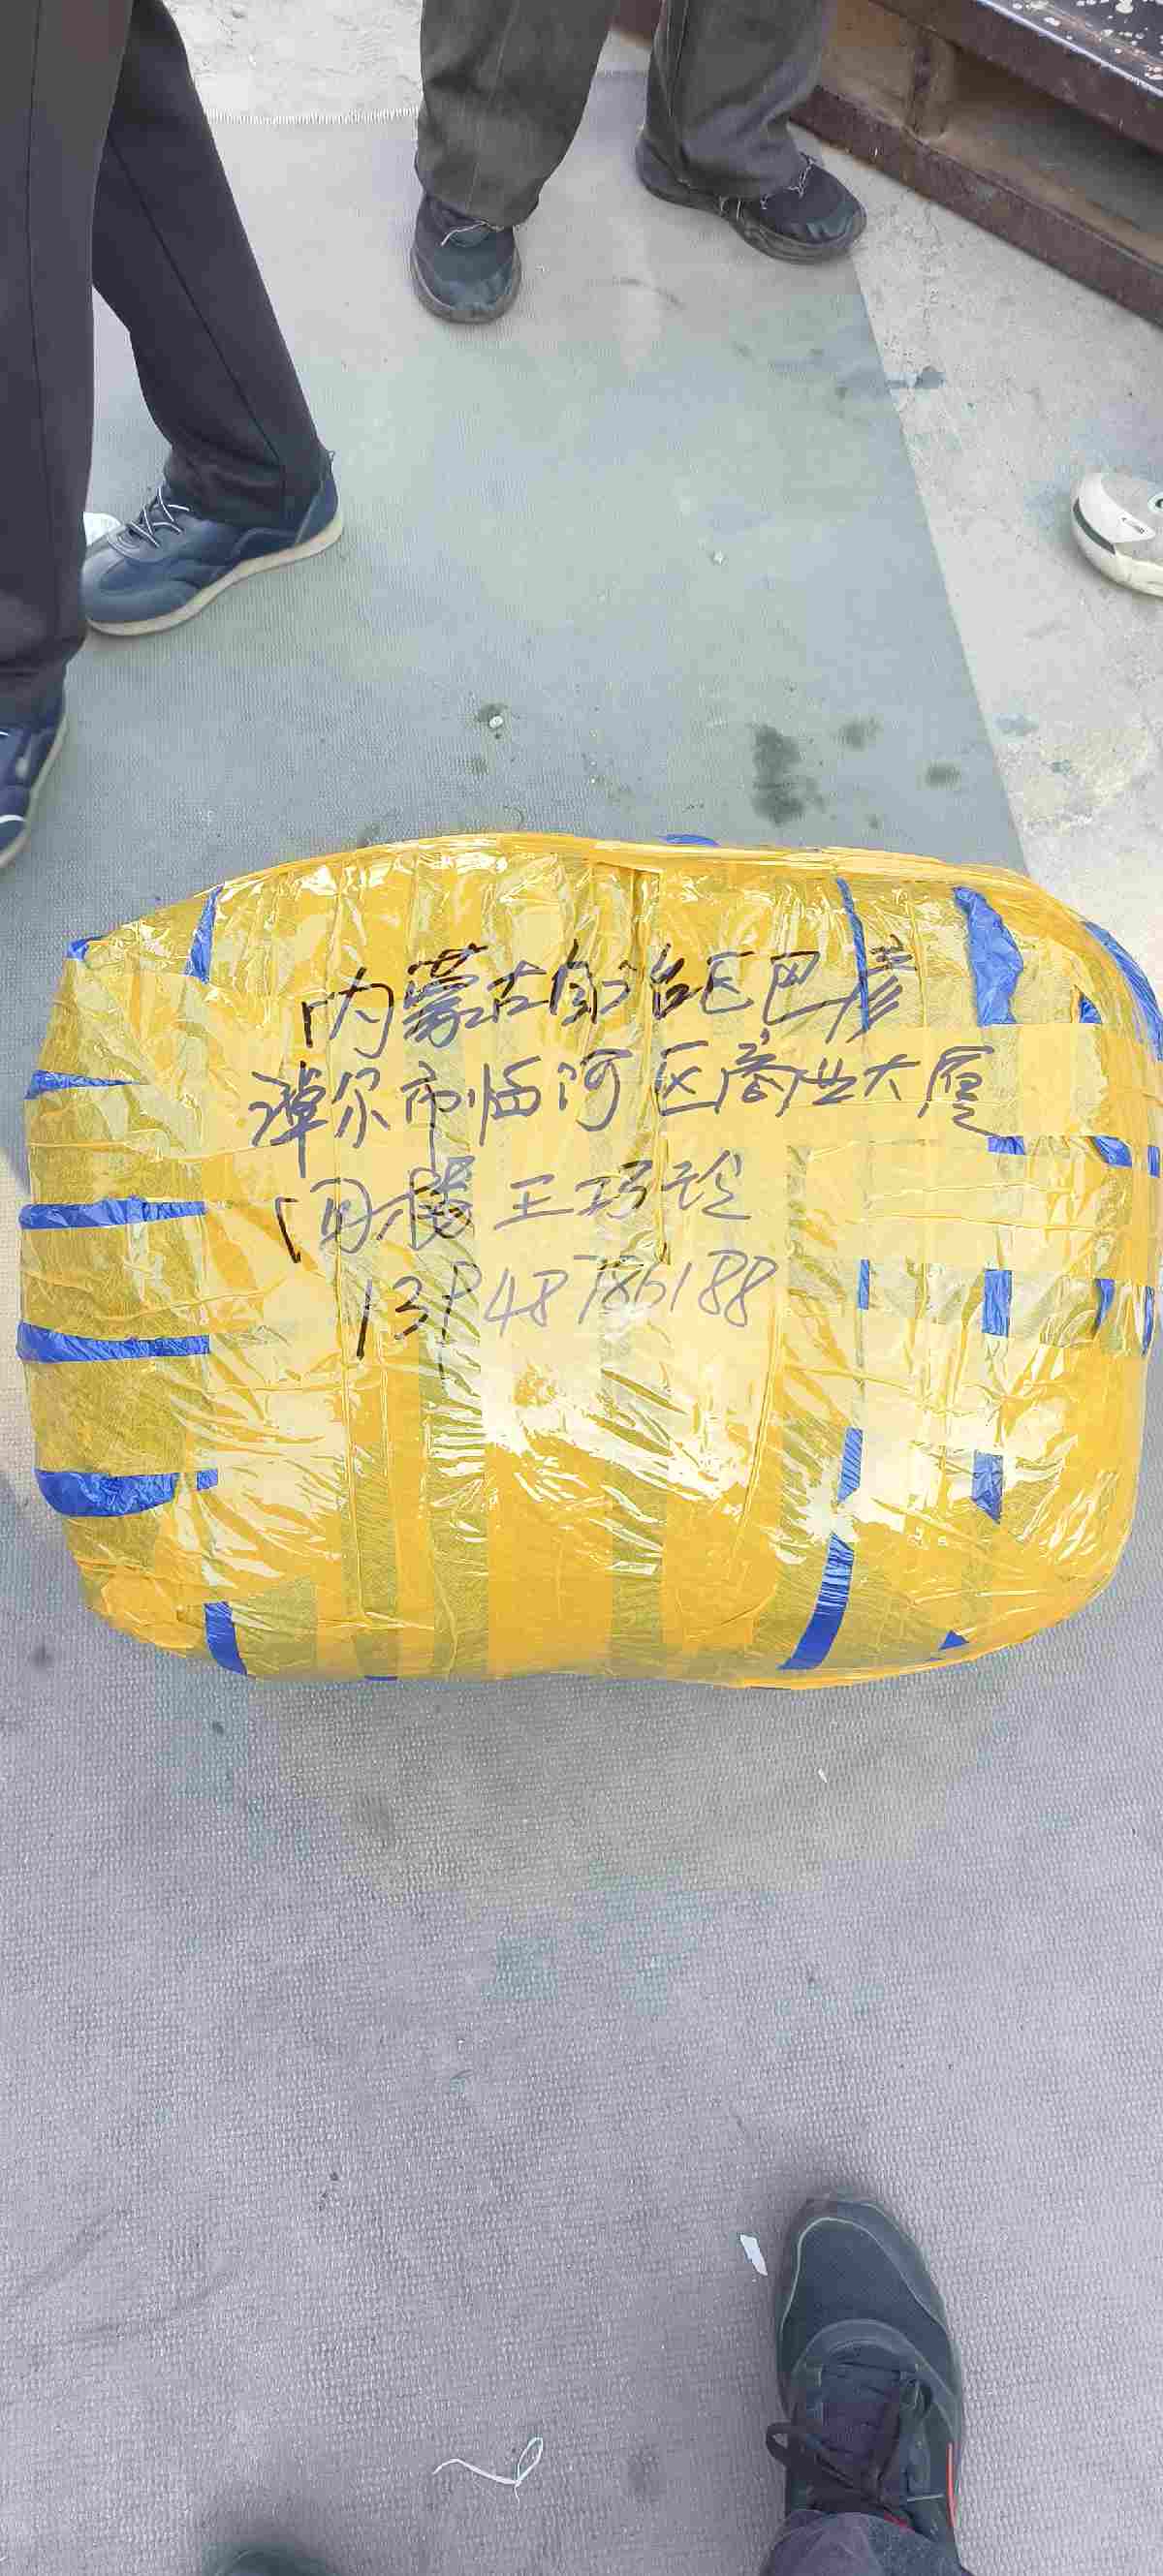 内蒙古自治区巴彦
淖尔市临河区商业大厦
四楼 王巧玲
13948786188